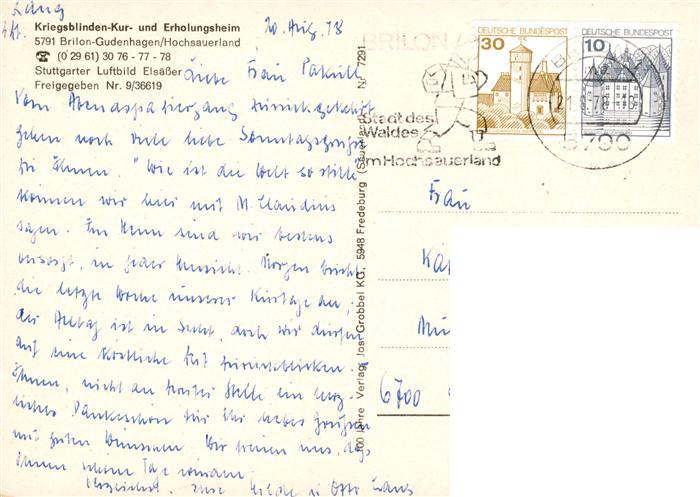 Kriegsblinden-Kur- und Erholungsheim
5791 Brilon-Gudenhagen/Hochsauerland
☎ (0 29 61) 30 76 - 77 - 78
Stuttgarter Luftbild Elsäßer
Freigegeben Nr. 9/36619
20. Aug. 78
Liebe Frau Pakull
Vom Abendspaziergang zurückgekehrt
gehen noch viele liebe Sonntagsgrüße
zu Ihnen. "Wie ist die Welt so stille"
können wir hier mit M. Claudius
sagen. Im Heim sind wir bestens
versorgt, in jeder Hinsicht. Morgen bricht
die letzte Woche unserer Kurtage an,
der Alltag ist in Sicht, doch wir dürfen
auf eine köstliche Zeit zurückblicken.
Ihnen, nicht an letzter Stelle ein herz-
liches Dankeschön für Ihr liebes
mit guten Wünschen. Wir freuen uns, daß
Ihnen schöne Tage
Herzlichst, Ihre Hilde u. Otto Lang
100 Jahre Verlag Jos. Grobbel KG, 5948 Fredeburg (Sauerland) Nr. 7291
DEUTSCHE BUNDESPOST
30
DEUTSCHE BUNDESPOST
10
BRILON
Stadt des
Waldes
im Hochsauerland
5790
Frau
6700